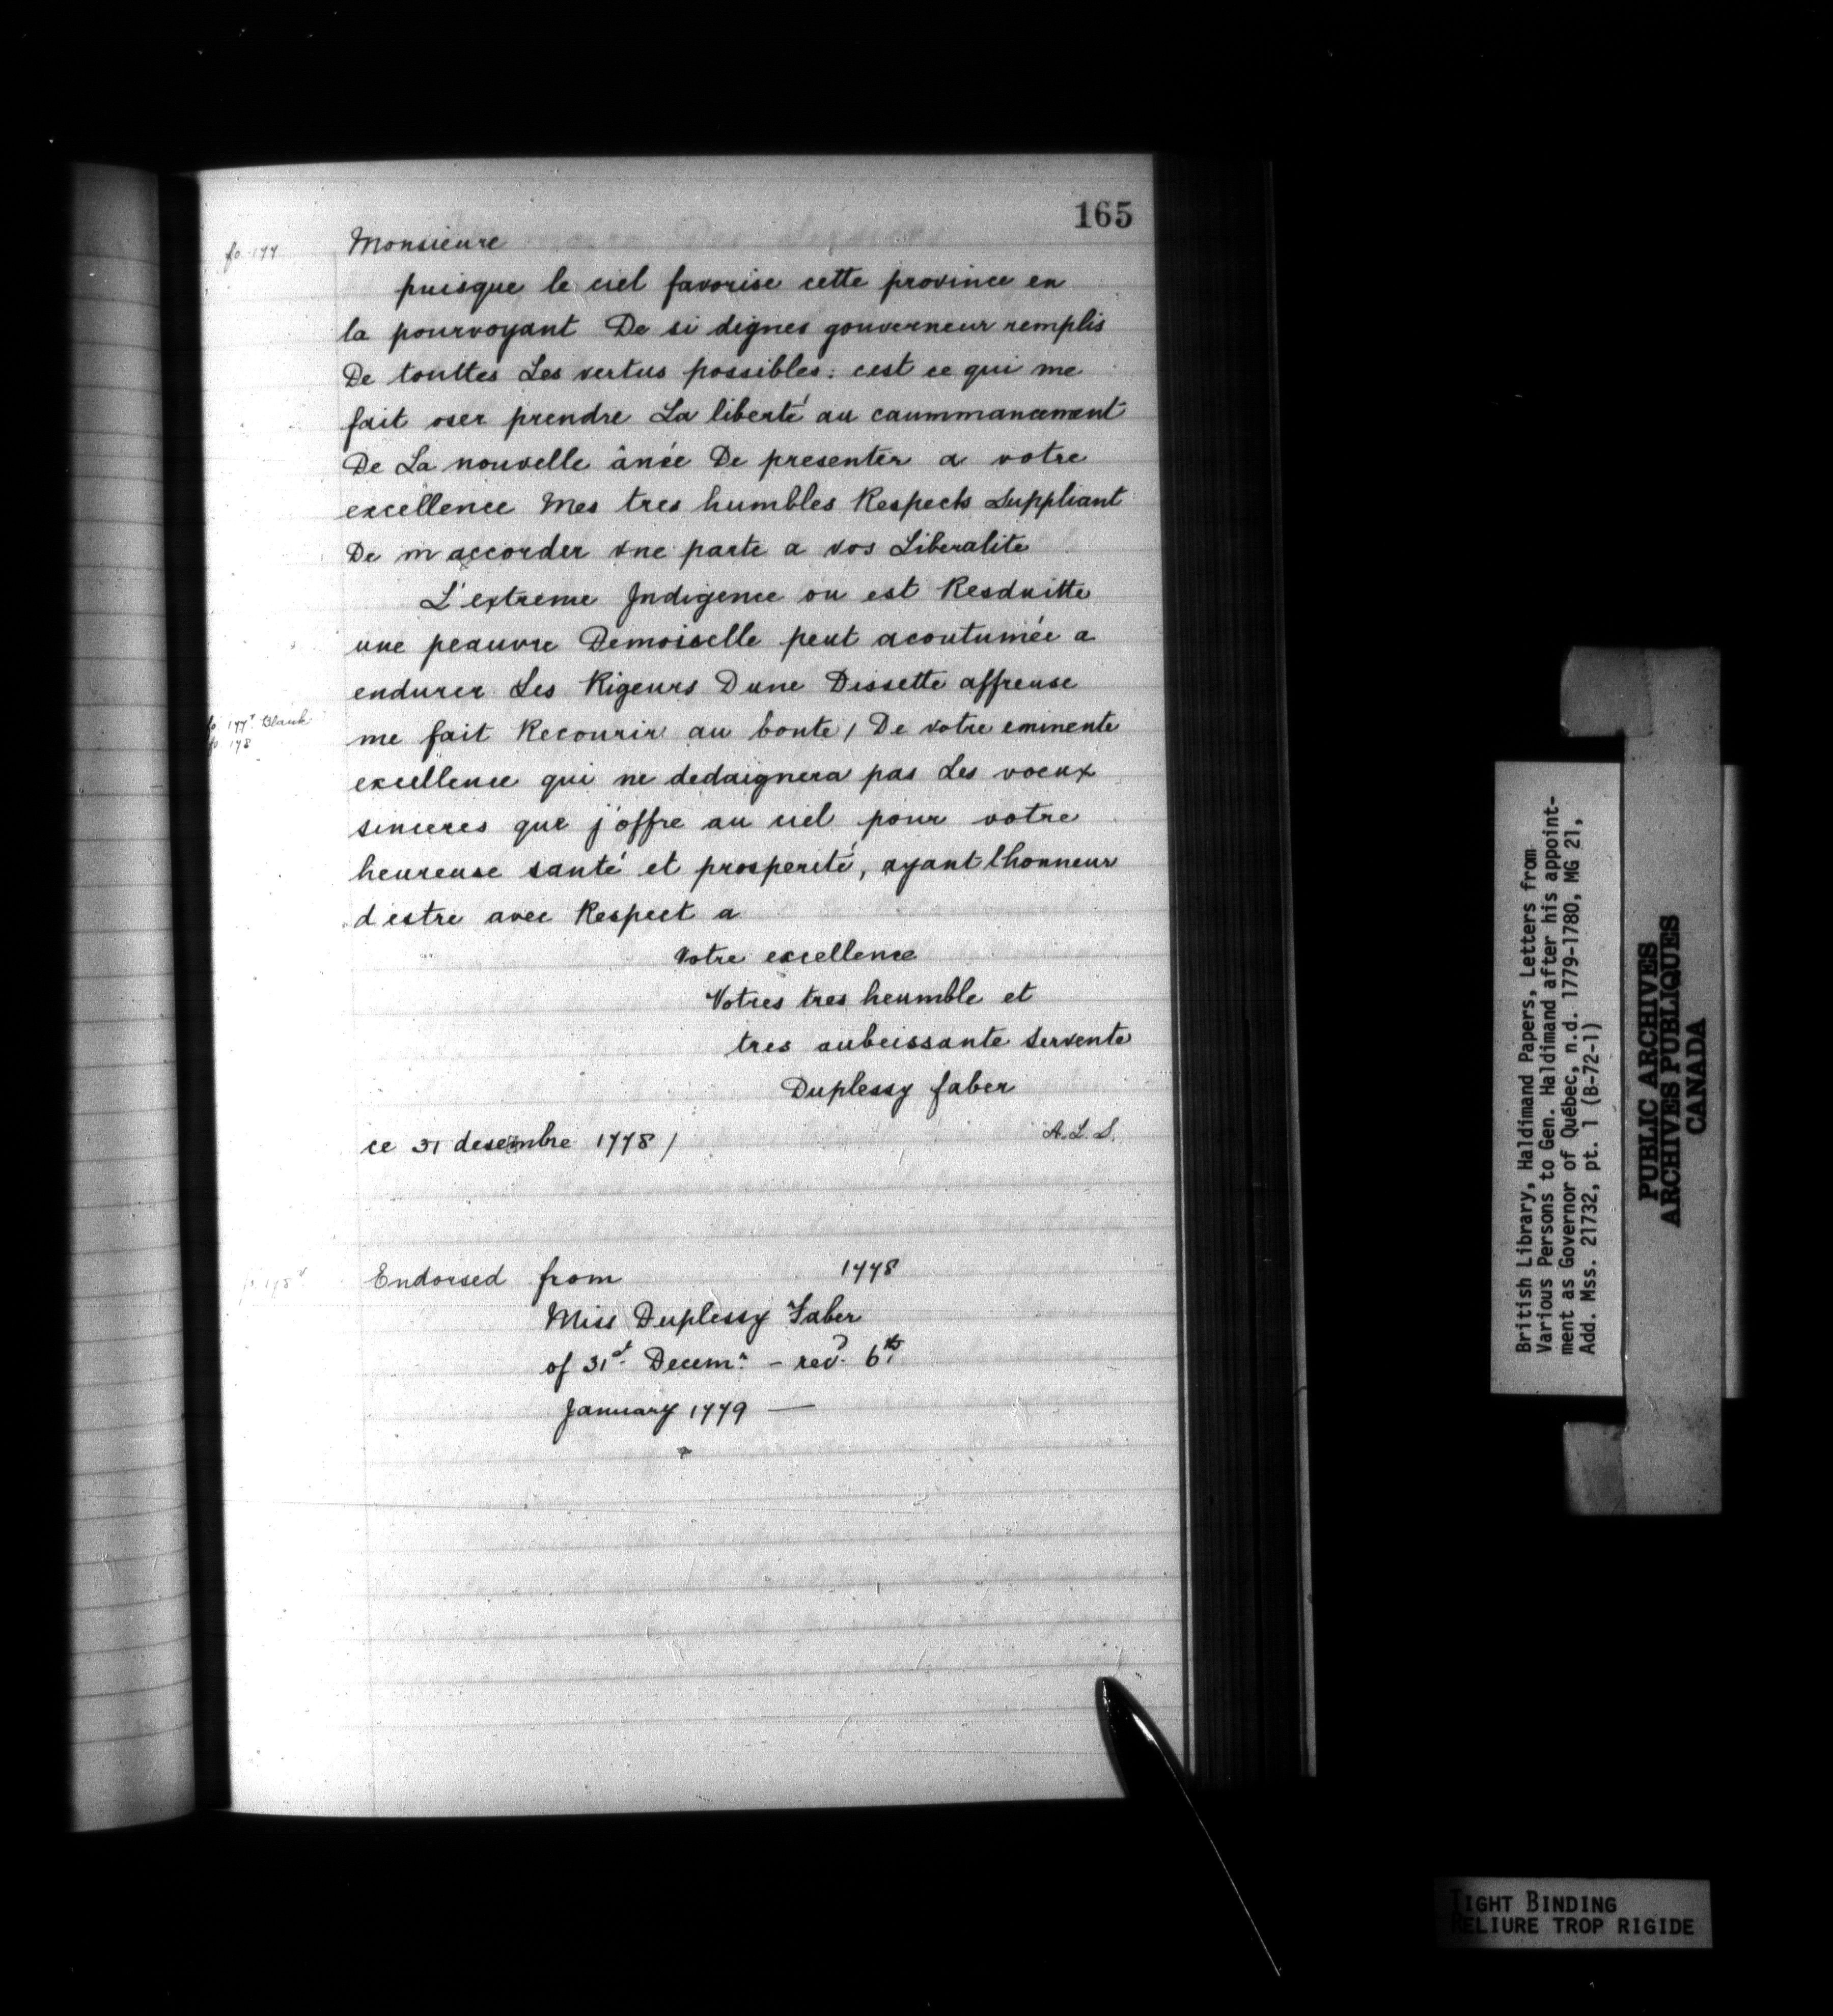 165
fo. 177
Monsieure
puisque le ciel favorise cette province en
la pourvoyant De si dignes gouverneur remplis
De touttes Les vertus possibles: cest ce qui me
fait oser prendre La liberté au caummancement
De La nouvelle ânée De presenter a votre
excellence Mes tres humbles Respects Suppliant
De m accorder vne parte a vos Liberalite
L'extreme Jndigence ou est Resduitte
une peauvre Demoiselle peut acoutumée a
endurer Les Rigeurs Dune Dissette affreuse
fo. 177v Blank
fo. 178
me fait Recourir au bonte / De votre eminente
excellence qui ne dedaignera pas Les voeux
sinceres que j'offre au ciel pour votre
heureuse santé et prosperité, ayant lhonneur
d estre avec Respect a
Votre excellence
Votres tres heumble et
tres aubeissante Servente
Duplessy faber
ce 31 desembre 1778 /
A.L.S.
fo 178v
Endorsed from 1778
Miss Duplessy Faber
of 31st Decemr. - recd. 6th
January 1779 —
British Library, Haldimand Papers, Letters from
Various Persons to Gen. Haldimand after his appoint-
ment as Governor of Québec, n.d. 1779-1780, MG 21,
Add. Mss. 21732, pt. 1 (B-72-1)
PUBLIC ARCHIVES
ARCHIVES PUBLIQUES
CANADA
TIGHT BINDING
RELIURE TROP RIGIDE